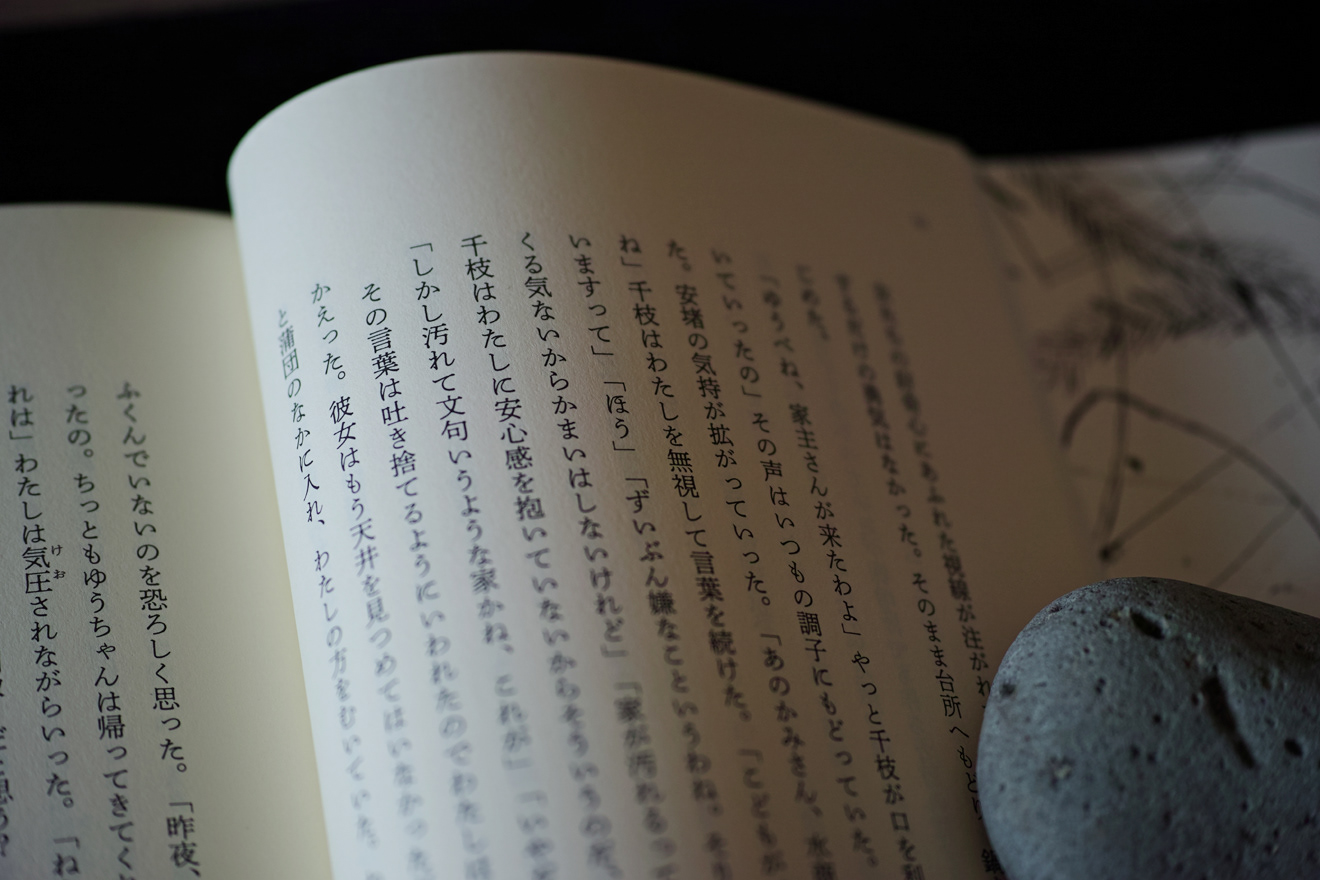 あふれた視線が注がれ
するだけの勇気はなかった。そのまま台所へもど
じめた。
「ゆうべね、家主さんが来たわよ」やっと千枝が口を利
いていったの」その声はいつもの調子にもどっていた。
た。安堵の気持が拡がっていった。「あのかみさん、水商
ね」千枝はわたしを無視して言葉を続けた。「こどもが
いますって」「ほう」「ずいぶん嫌なこというわね。そ
くる気ないからかまいはしないけれど」「家が汚れるって
千枝はわたしに安心感を抱いていないからそういうのだ。
「しかし汚れて文句いうような家かね、これが」「いや
その言葉は吐き捨てるようにいわれたのでわたしは
かえった。彼女はもう天井を見つめてはいなかった。
と蒲団のなかに入れ、わたしの方をむいていた。
ふくんでいないのを恐ろしく思った。「昨夜、
ったの。ちっともゆうちゃんは帰ってきてく
れは」わたしは気圧されながらいった。「ね